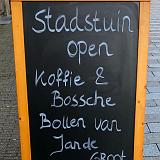 Stadstuin
open
Koffie &
Bossche
Bollen van
Jan de
GROOT